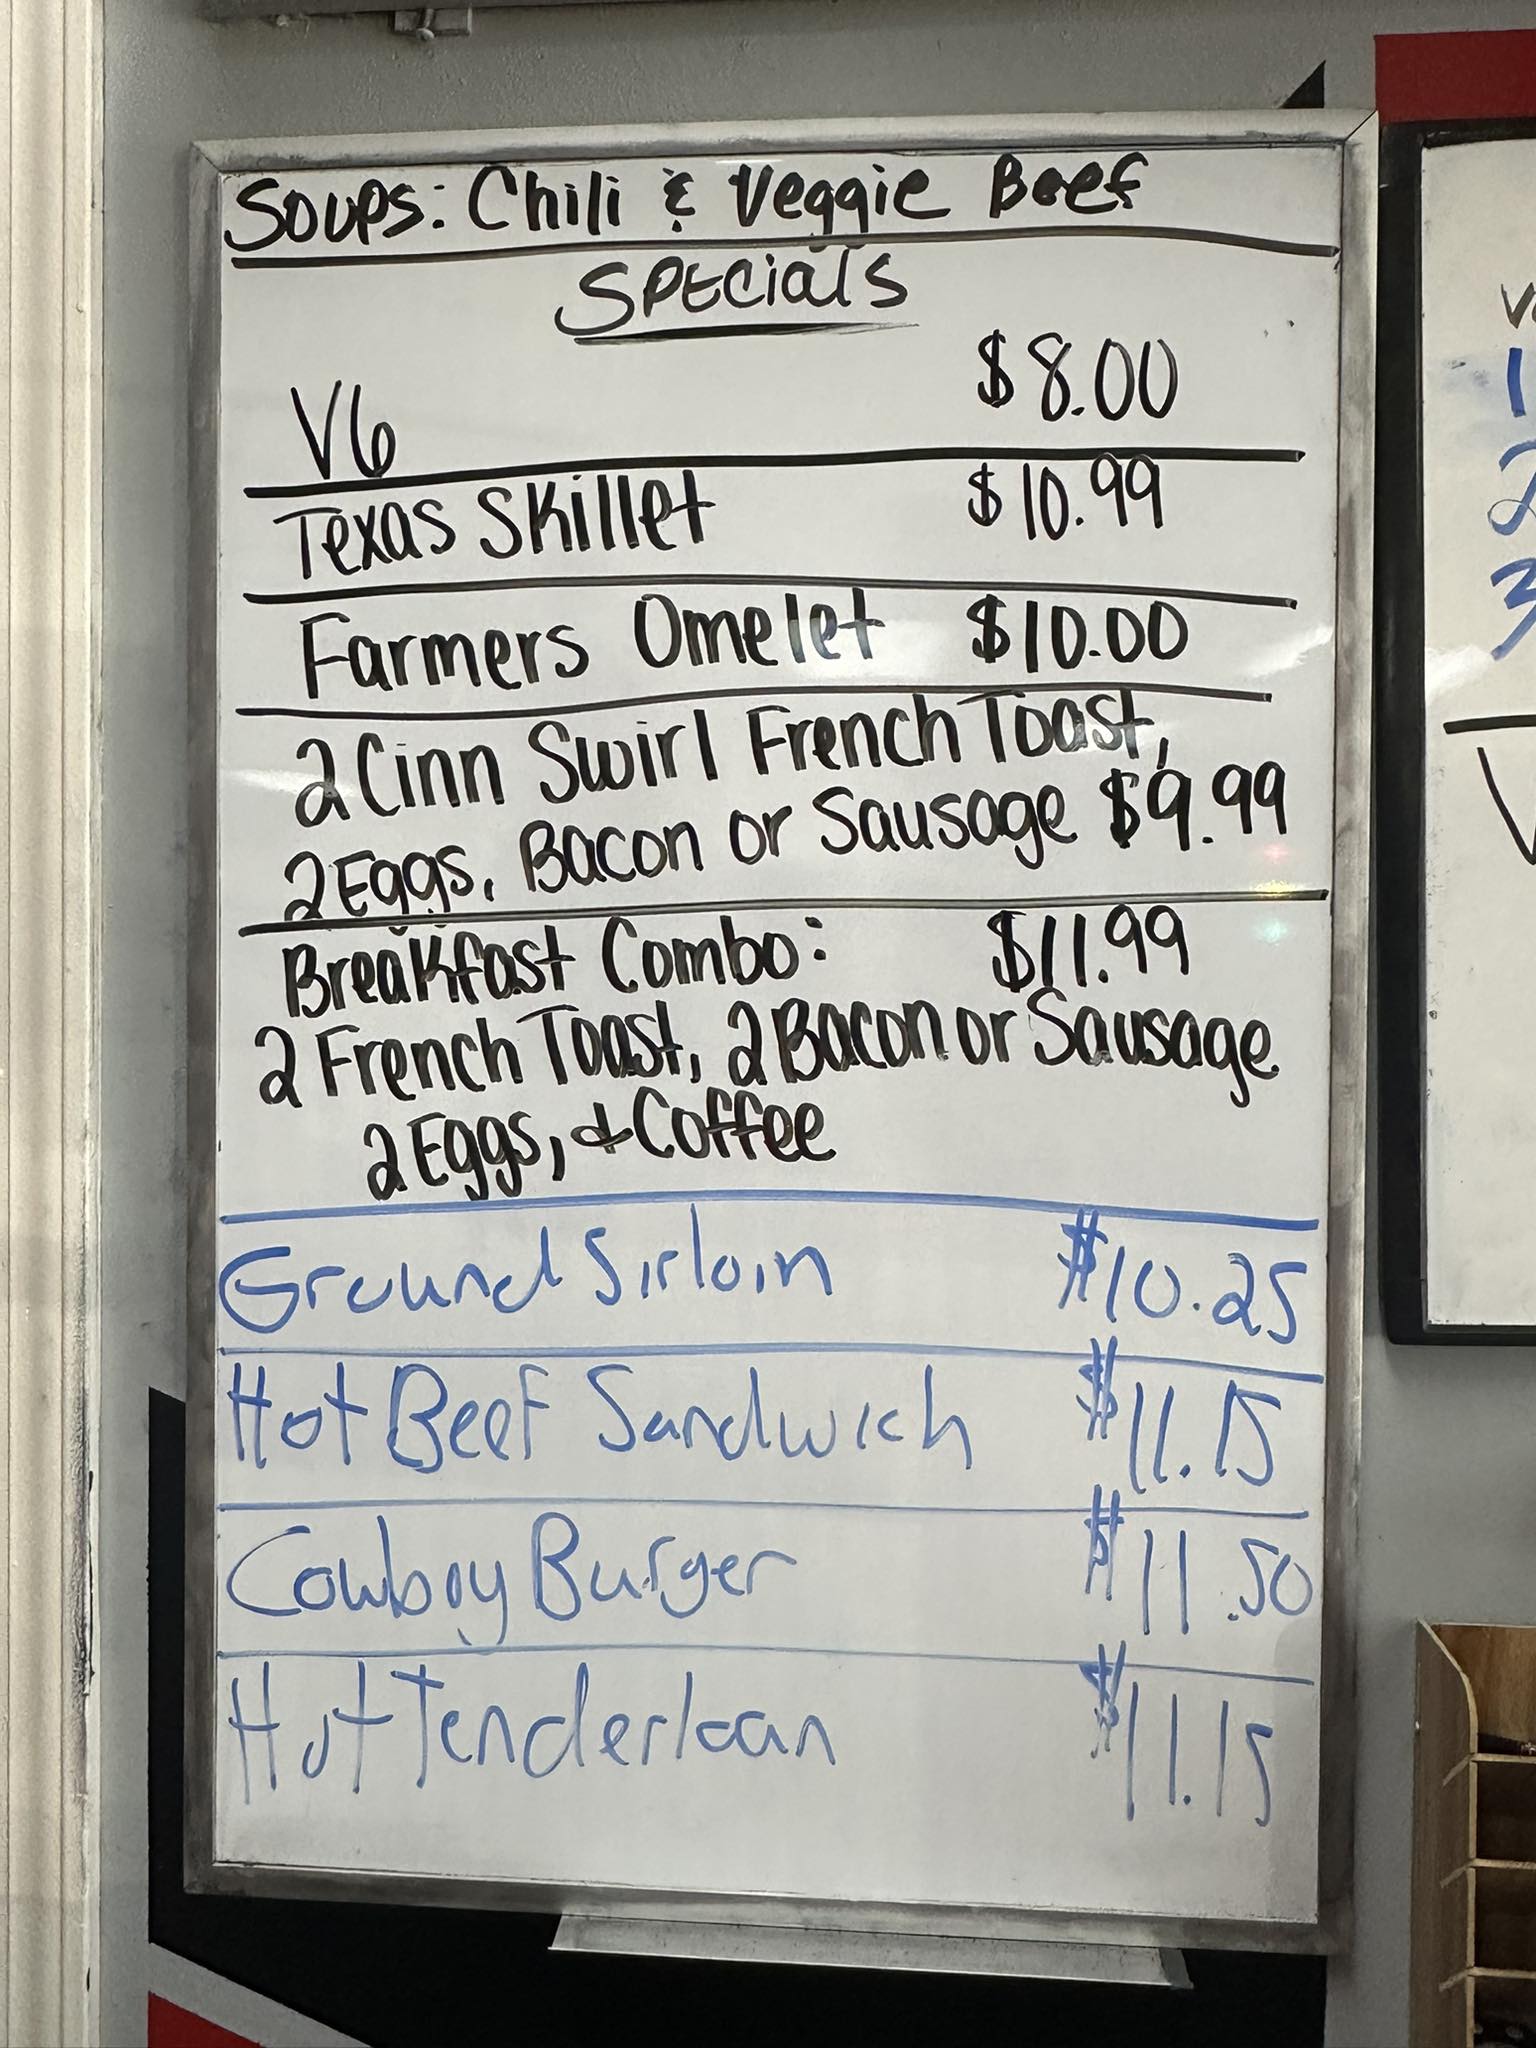 Soups: Chili & Veggie Beef
Specials
V6 $8.00
Texas Skillet $10.99
Farmers Omelet $10.00
2 Cinn Swirl French Toast,
2 Eggs, Bacon or Sausage $9.99
Breakfast Combo: $11.99
2 French Toast, 2 Bacon or Sausage
2 Eggs, & Coffee
Ground Sirloin $10.25
Hot Beef Sandwich $11.15
Cowboy Burger $11.50
Hot Tenderloan $11.15
1
2
3